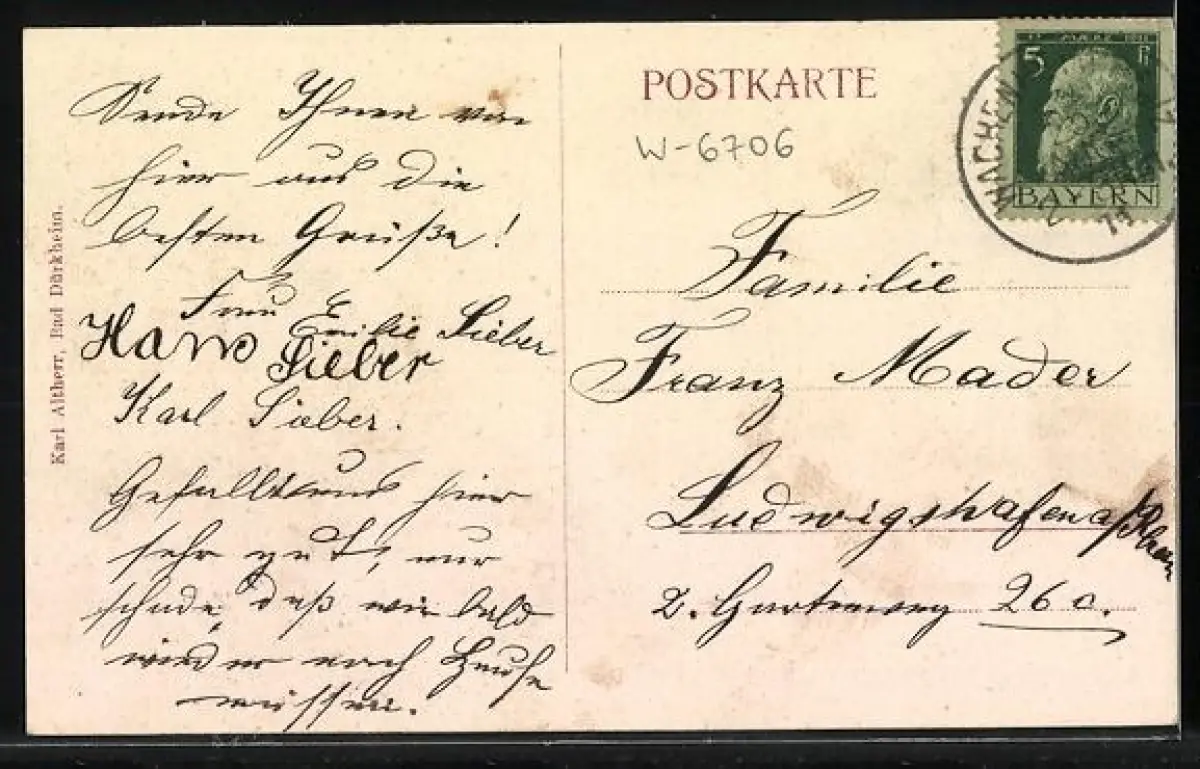 Sende Ihnen von
hier aus die
besten Grüße!
Frau Emilie Sieber
Hans Sieber
Karl Sieber.
Gefällt uns hier
sehr gut, nur
schade, daß wir bald
wieder nach Hause
müssen.
Karl Altherr, Bad Dürkheim.
POSTKARTE
W-6706
5 Pf
BAYERN
WACHEN
Familie
Franz Mader
Ludwigshafen a/Rhein
2. Gartenweg 26c.